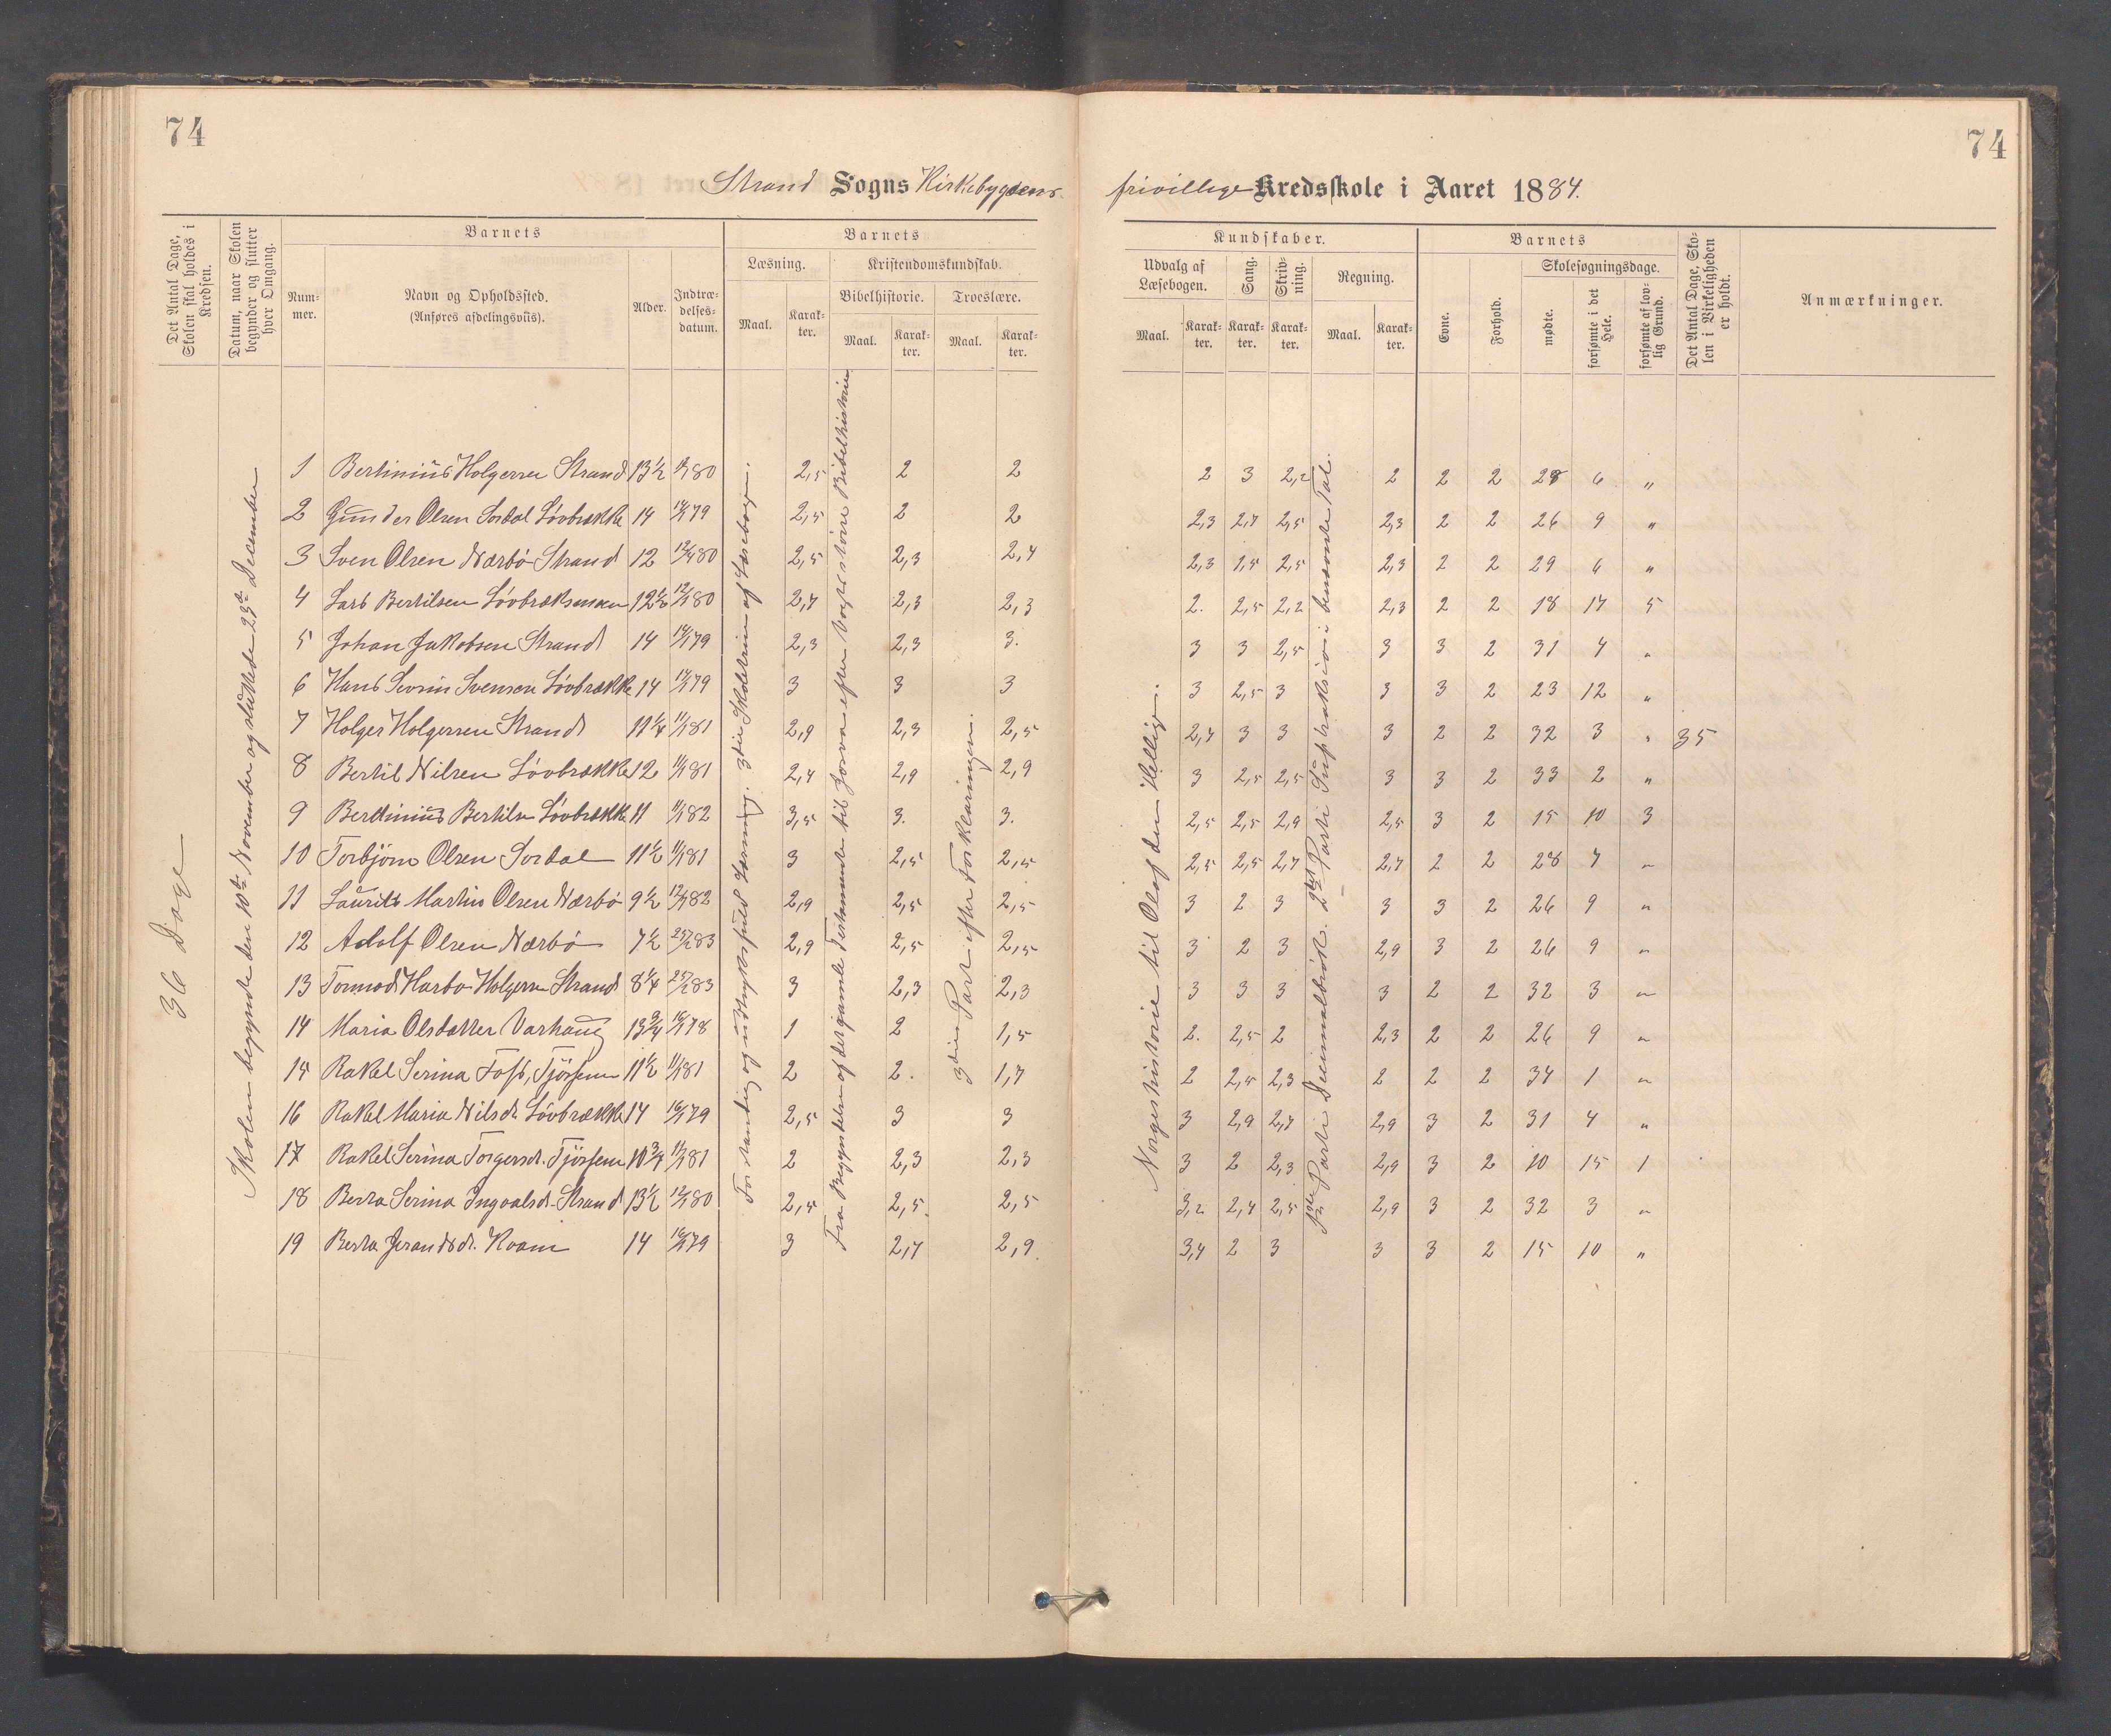 74
74
Strand Sogns Kirkebygdens frivillige Kredsskole i Aaret 1884.
Det Antal Dage, Skolen skal holdes i Kredsen.
Datum, naar Skolen begynder og slutter hver Omgang.
Barnets
Nummer.
Navn og Opholdssted.
(Anføres afdelingsviis).
Alder.
Indtrædelsesdatum.
Barnets
Læsning.
Maal.
Karakter.
Kristendomskundskab.
Bibelhistorie.
Maal.
Karakter.
Troeslære.
Maal.
Karakter.
Kundskaber.
Udvalg af Læsebogen.
Maal.
Karakter.
Sang.
Karakter.
Skrivning.
Karakter.
Regning.
Maal.
Karakter.
Barnets
Evne.
Forhold.
Skolesøgningsdage.
mødte.
forsømte i det Hele.
forsømte af lovlig Grund.
Det Antal Dage, Skolen i Virkeligheden er holdt.
Anmærkninger.
36 Dage
Skolen begyndte den 10de November og sluttede 23de December
Forstandig og udtryksfuld Læsning. 3die Skoletrin af Læsebogen.
Fra Begyndelsen af det gamle Testamente til Josva efter Vogts større Bibelhistorie
3die Part efter Forklaringen.
Norgeshistorie til Olaf den Hellige.
1ste Parti Decimalbrøk. 2det Parti Subtraksion i benævnte Tal.
1 Bertinius Holgersen Strand 13½ 80 2,5 2 2 2 3 2,2 2 2 2 28 6 "
2 Gunder Olsen Sordal Løvbrække 14 79 2,5 2 2 2,3 2,7 2,5 2,3 2 2 26 9 "
3 Sven Olsen Nærbø Strand 12 80 2,5 2,3 2,4 2,3 1,5 2,5 2,3 2 2 29 6 "
4 Lars Bertilsen Løvbræksmoen 12½ 80 2,7 2,3 2,3 2. 2,5 2,2 2,3 2 2 18 17 5
5 Johan Jakobsen Strand 14 79 2,3 2,3 3. 3 3 2,5 3 3 2 31 4 "
6 Hans Sevrin Svensen Løvbrække 14 79 3 3 3 3 2,5 3 3 3 2 23 12 "
7 Holger Holgersen Strand 11¼ 81 2,9 2,3 2,5 2,7 3 3 3 2 2 32 3 " 35
8 Bertil Nilsen Løvbrække 12 81 2,4 2,9 2,9 3 2,5 2,5 3 3 2 33 2 "
9 Berdinius Bertilsn Løvbrække 11 82 3,5 3. 3. 2,5 2,5 2,9 2,5 3 2 15 10 3
10 Torbjørn Olsen Sordal 11½ 81 3 2,5 2,5 2,5 2,5 2,7 2,7 2 2 28 7 "
11 Laurits Martin Olsen Nærbø 9½ 82 2,9 2,5 2,5 3 2 3 3 3 2 26 9 "
12 Adolf Olsen Nærbø 7½ 83 2,9 2,5 2,5 3 2 3 2,9 3 2 26 9 "
13 Tormod Harbo Holgersn Strand 8¼ 83 3 2,3 2,3 3 3 3 3 2 2 32 3 "
14 Maria Olsdatter Varhaug 13¾ 78 1 2 1,5 2. 2,5 2 2,3 2 2 26 9 "
15 Rakel Serina Fofs, Tjøssem 11½ 81 2 2. 1,7 2 2,5 2,3 2 2 2 34 1 "
16 Rakel Maria Nilsdr Løvbrække 14 79 2,5 3 3 3 2,9 2,7 2,9 3 2 31 4 "
17 Rakel Serina Torgersdr. Tjøssem 10¾ 81 2 2,3 2,3 3 2 2,3 2,9 3 2 20 15 1
18 Berta Serina Ingvalsd. Strand 13½ 80 2,5 2,5. 2,5 3,2 2,4 2,5 2,9 3 2 32 3 "
19 Berta Jerandsdr. Kvam 14 79 3 2,7 2,9. 3,4 2 3 3 3 2 15 10 "